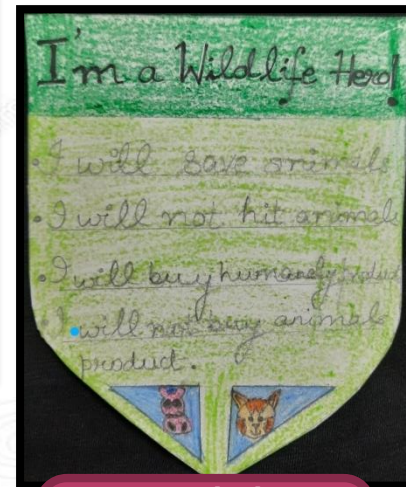 I'm a Wildlife Hero!
• I will save animals
• I will not hit animals
• I will buy humanely product
• I will not buy animal
product.